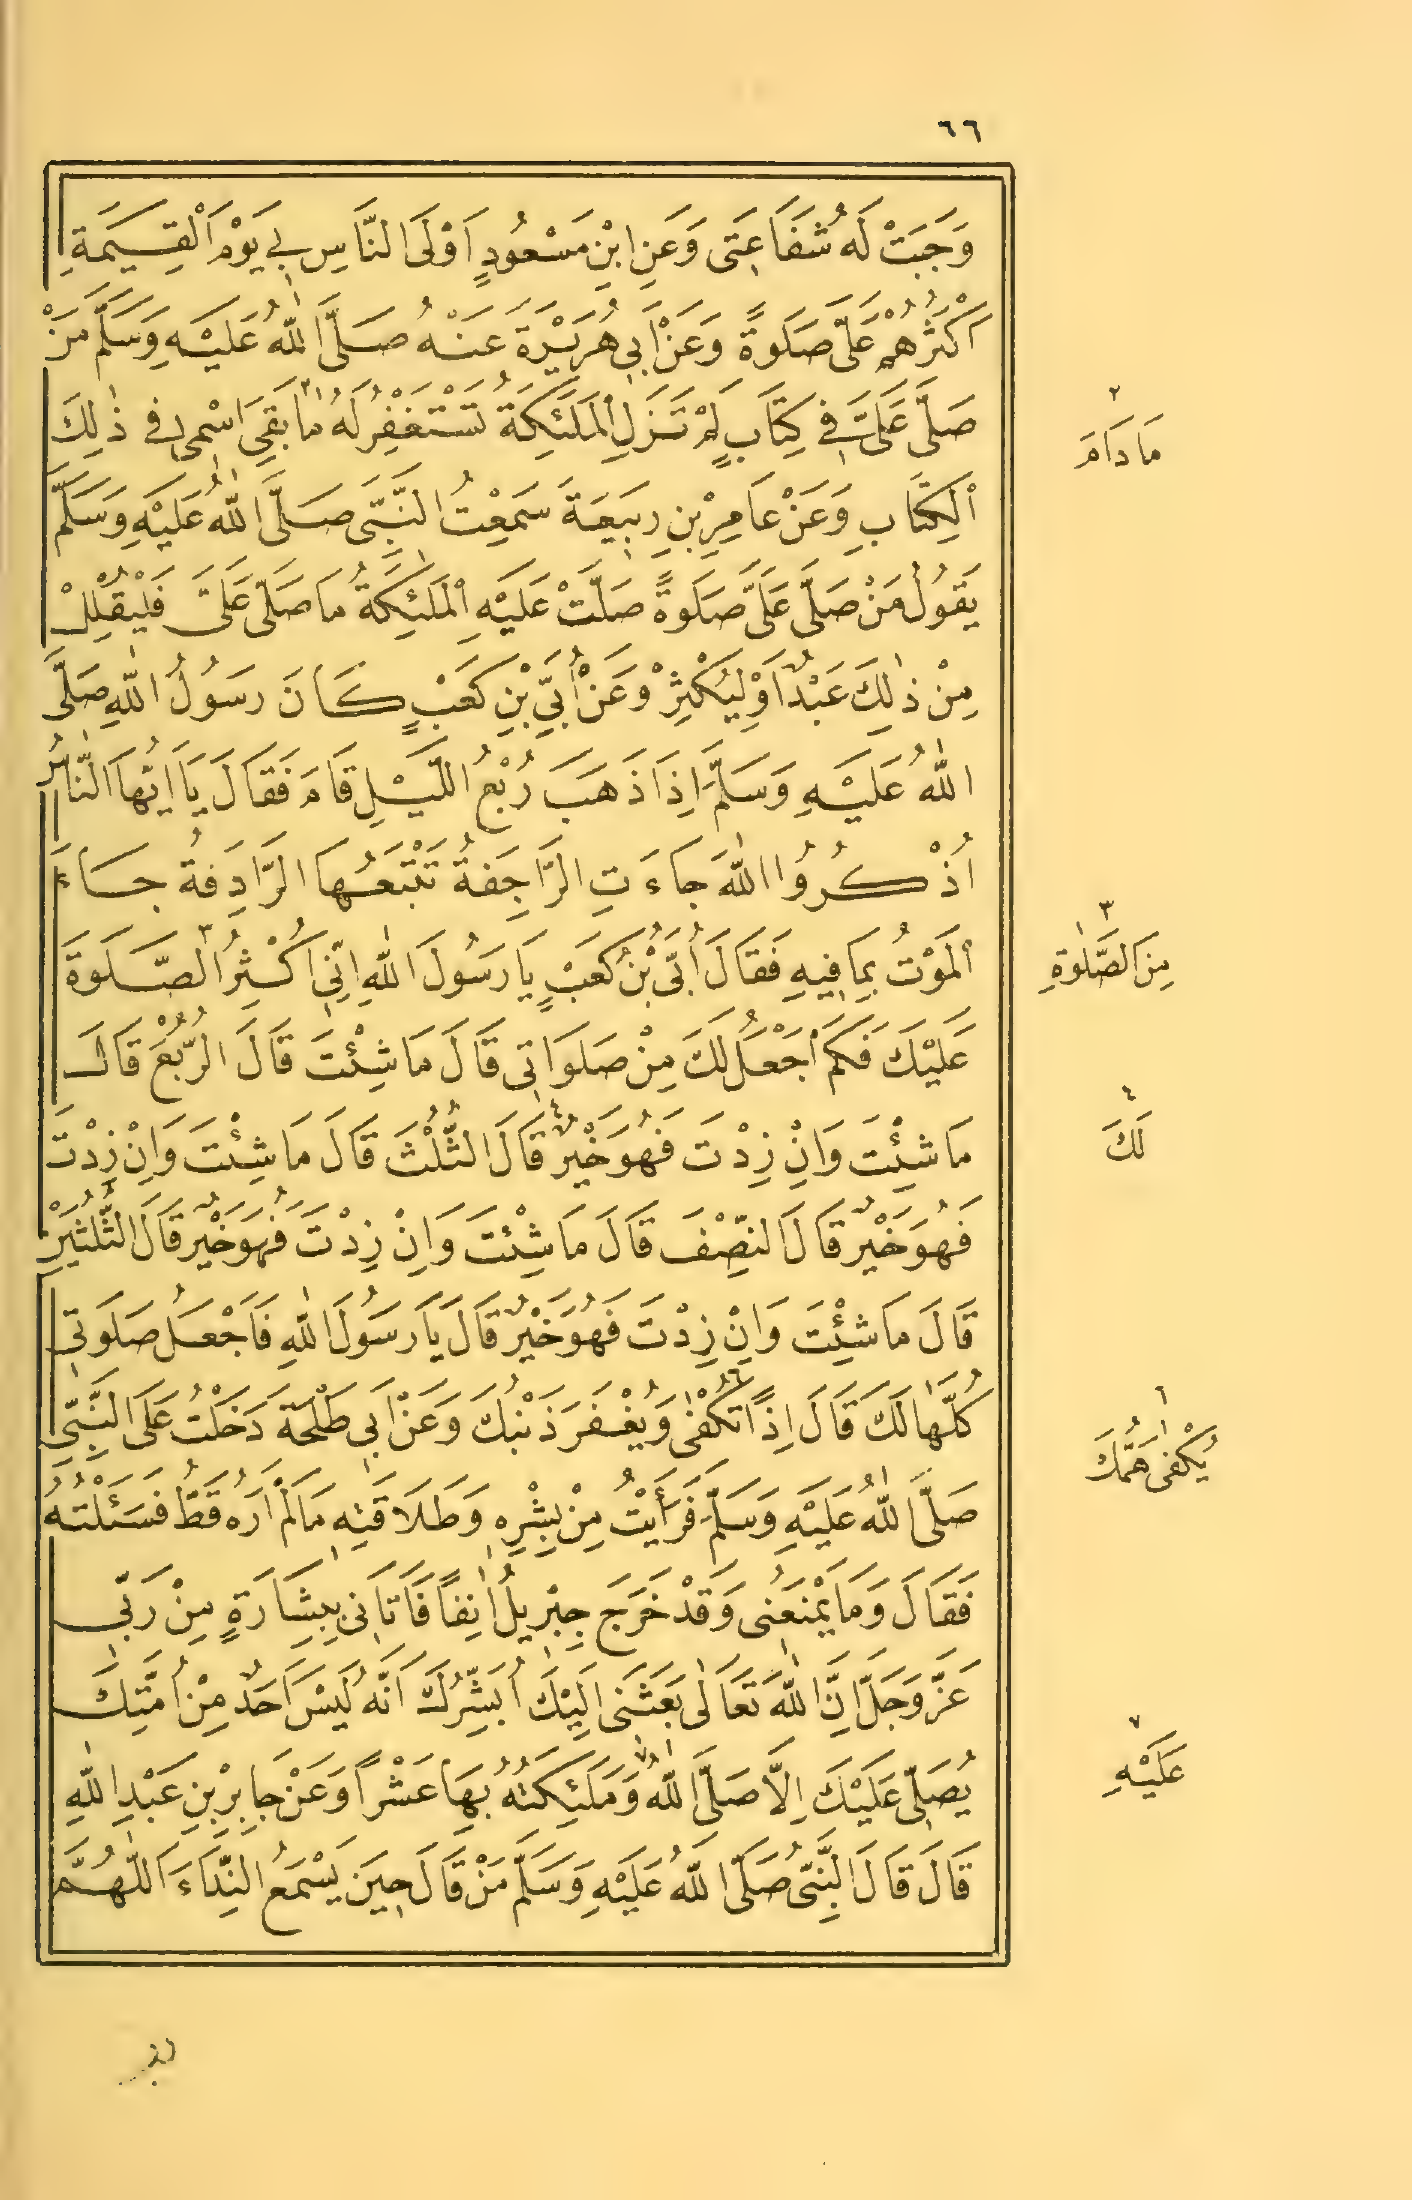 ٦٦
وَجَبَتْ لَهُ شَفَاعَتِى وَعَنِ ابْنِ مَسْعُودٍ اَوْلَى النَّاسِ بِى يَوْمَ الْقِيٰمَةِ
اَكْثَرُهُمْ عَلَىَّ صَلَوةً وَعَنْ اَبِى هُرَيْرَةَ عَنْهُ صَلَّى اللّٰهُ عَلَيْهِ وَسَلَّمَ مَنْ
صَلَّى عَلَىَّ فِى كِتَابٍ لَمْ تَزَلِ الْمَلَئِكَةُ تَسْتَغْفِرُ لَهُ مَا بَقِىَ اسْمِى فِى ذٰلِكَ
الْكِتَابِ وَعَنْ عَامِرِ بْنِ رَبِيعَةَ سَمِعْتُ النَّبِىَّ صَلَّى اللّٰهُ عَلَيْهِ وَسَلَّمَ
يَقُولُ مَنْ صَلَّى عَلَىَّ صَلَوةً صَلَّتْ عَلَيْهِ الْمَلَئِكَةُ مَا صَلَّى عَلَىَّ فَلْيُقْلِلْ
مِنْ ذٰلِكَ عَبْدٌ اَوْ لِيُكْثِرْ وَعَنْ اُبَىِّ بْنِ كَعْبٍ كَانَ رَسُولُ اللّٰهِ صَلَّى
اللّٰهُ عَلَيْهِ وَسَلَّمَ اِذَا ذَهَبَ رُبْعُ اللَّيْلِ قَامَ فَقَالَ يَا اَيُّهَا النَّاسُ
اُذْكُرُوا اللّٰهَ جَاءَتِ الرَّاجِفَةُ تَتْبَعُهَا الرَّادِفَةُ جَاءَ
الْمَوْتُ بِمَا فِيهِ فَقَالَ اُبَىُّ بْنُ كَعْبٍ يَا رَسُولَ اللّٰهِ اِنِّى اُكْثِرُ الصَّلَوةَ ٣
عَلَيْكَ فَكَمْ اَجْعَلُ لَكَ مِنْ صَلَوَاتِى قَالَ مَا شِئْتَ قَالَ الرُّبُعَ قَالَ
مَا شِئْتَ وَاِنْ زِدْتَ فَهُوَ خَيْرٌ ٤ قَالَ الثُّلُثَ قَالَ مَا شِئْتَ وَاِنْ زِدْتَ
فَهُوَ خَيْرٌ قَالَ النِّصْفَ قَالَ مَا شِئْتَ وَاِنْ زِدْتَ فَهُوَ خَيْرٌ قَالَ الثُّلُثَيْنِ
قَالَ مَا شِئْتَ وَاِنْ زِدْتَ فَهُوَ خَيْرٌ قَالَ يَا رَسُولَ اللّٰهِ فَاَجْعَلُ صَلَوتِى
كُلَّهَا لَكَ قَالَ اِذًا تُكْفٰى ٦ وَيُغْفَرَ ذَنْبُكَ وَعَنْ اَبِى طَلْحَةَ دَخَلْتُ عَلَى النَّبِىِّ
صَلَّى اللّٰهُ عَلَيْهِ وَسَلَّمَ فَرَأَيْتُ مِنْ بِشْرِهِ وَطَلَاقَتِهِ مَا لَمْ اَرَهُ قَطُّ فَسَئَلْتُهُ
فَقَالَ وَمَا يَمْنَعُنِى وَقَدْ خَرَجَ جِبْرِيلُ اٰنِفًا فَاَتَانِى بِبِشَارَةٍ مِنْ رَبِّى
عَزَّ وَجَلَّ اِنَّ اللّٰهَ تَعَالٰى بَعَثَنِى اِلَيْكَ اُبَشِّرُكَ اَنَّهُ لَيْسَ اَحَدٌ مِنْ اُمَّتِكَ
يُصَلِّى عَلَيْكَ اِلَّا صَلَّى اللّٰهُ ٧ وَمَلَئِكَتُهُ بِهَا عَشْرًا وَعَنْ جَابِرِ بْنِ عَبْدِ اللّٰهِ
قَالَ قَالَ النَّبِىُّ صَلَّى اللّٰهُ عَلَيْهِ وَسَلَّمَ مَنْ قَالَ حِينَ يَسْمَعُ النِّدَاءَ اَللّٰهُمَّ
٢
مَا دَامَ
٣
مِنَ الصَّلٰوةِ
٤
لَكَ
٦
يُكْفٰى هَمُّكَ
٧
عَلَيْهِ